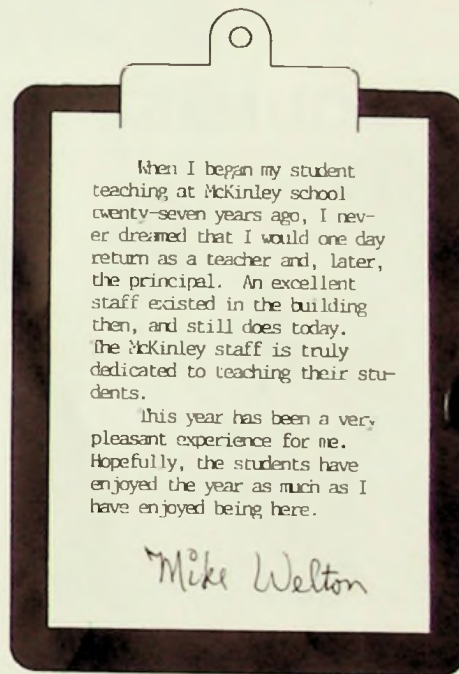 When I began my student
teaching at McKinley school
twenty-seven years ago, I nev-
er dreamed that I would one day
return as a teacher and, later,
the principal. An excellent
staff existed in the building
then, and still does today.
The McKinley staff is truly
dedicated to teaching their stu-
dents.
This year has been a very
pleasant experience for me.
Hopefully, the students have
enjoyed the year as much as I
have enjoyed being here.
Mike Welton